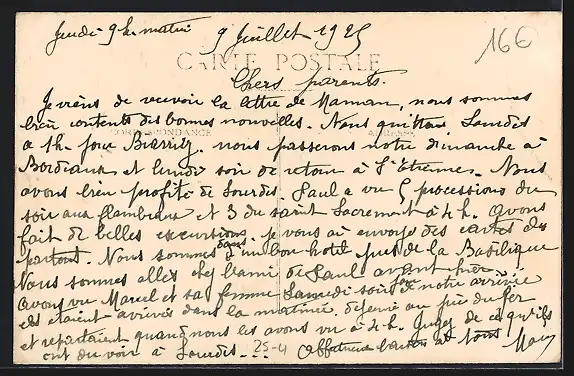 Jeudi 9h. matin 9 Juillet 1925
16€
CARTE POSTALE
Chers parents.
Je viens de recevoir la lettre de Maman, nous sommes
bien contents des bonnes nouvelles. Nous quittons Lourdes
CORRESPONDANCE ADRESSE
à 1h. pour Biarritz. nous passerons notre dimanche à
Bordeaux et lundi soir de retour à St Etienne. Nous
avons bien profité de Lourdes. Paul a vu 5 processions du
soir aux flambeaux et 3 du saint Sacrement à 4h. Avons
fait de belles excursions. je vous ai envoyé des cartes de
partout. Nous sommes dans un bon hotel près de la Basilique
Nous sommes allés chez l'ami de Paul avant hier.
Avons vu Marcel et sa femme Samedi soir jour de notre arrivée
ils étaient arrivés dans la matinée, déjeuné au pic du Jer
et repartaient quand nous les avons vu à 4h. Jugez de ce qu'ils
ont du voir à Lourdes... 25-4 Affectueux baisers à tous